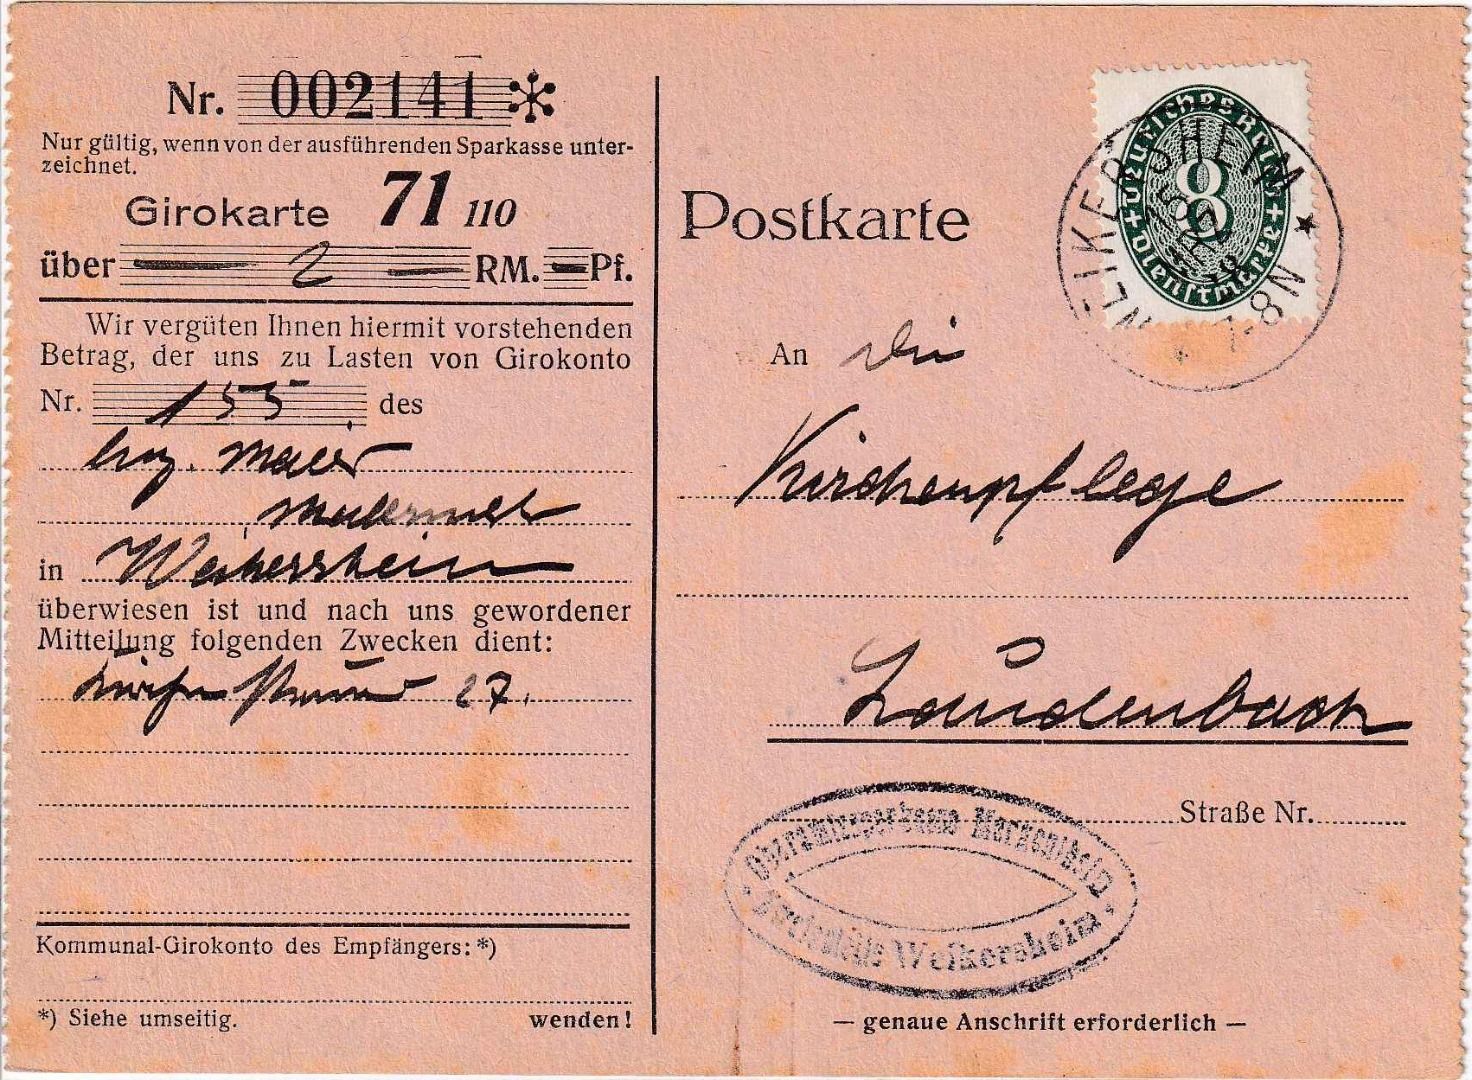 Nr. 002141 *
Nur gültig, wenn von der ausführenden Sparkasse unter-
zeichnet.
Girokarte 71 110
über — 2 — RM. — Pf.
Wir vergüten Ihnen hiermit vorstehenden
Betrag, der uns zu Lasten von Girokonto
Nr. 155 des
Maier
in Weikersheim
überwiesen ist und nach uns gewordener
Mitteilung folgenden Zwecken dient:
27.
Kommunal-Girokonto des Empfängers: *)
*) Siehe umseitig. wenden!
Postkarte
Deutsches Reich
8
Dienstmarke
WEIKERSHEIM
7-8N
An die
Kirchenpflege
Laudenbach
Straße Nr.
Oberamtssparkasse Mergentheim
Weikersheim
— genaue Anschrift erforderlich —